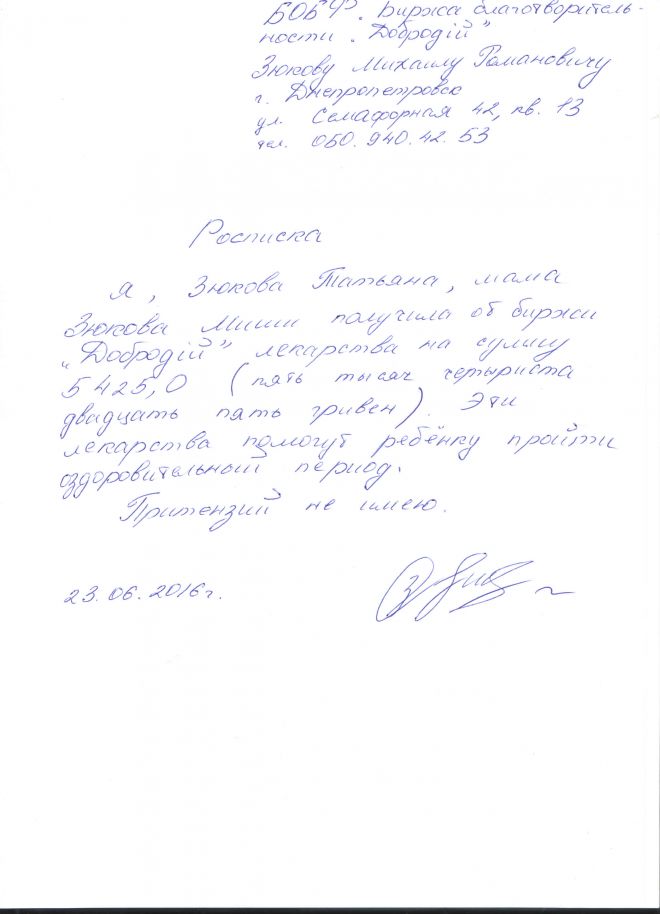 Биржа благотворитель-
ности "Добродій"
Зюкову Михаилу Романовичу
г. Днепропетровск
ул. Семафорная 42, кв. 13
тел. 050. 940. 42. 53
Росписка
Я, Зюкова Татьяна, мама
Зюкова Миши получила от биржи
"Добродій" лекарства на сумму
5425,0 (пять тысяч четыриста
двадцать пять гривен). Эти
лекарства помогут ребёнку пройти
оздоровительный период.
Притензий не имею.
23.06.2016г.